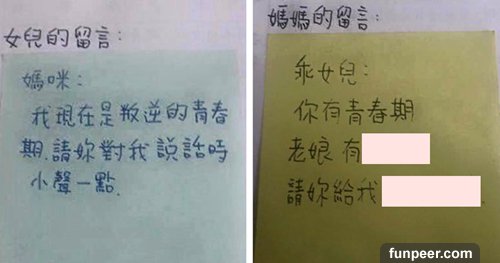 女兒的留言：
媽咪：
我現在是叛逆的青春
期.請妳對我說話時
小聲一點.
媽媽的留言：
乖女兒：
你有青春期
老娘有
請妳給我
funpeer.com